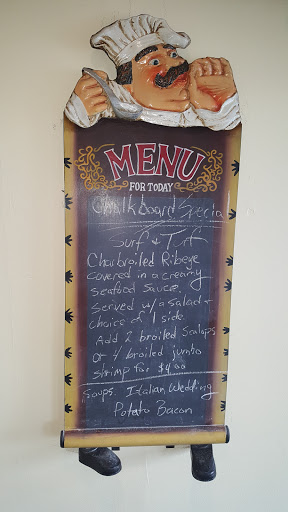 MENU
FOR TODAY
Chalkboard Special
Surf & Turf
Charbroiled Ribeye
covered in a creamy
seafood sauce,
served w/a salad +
choice of 1 side.
Add 2 broiled scallops
or 4 broiled jumbo
shrimp for $4.00
Soups. Italian Wedding
Potato Bacon